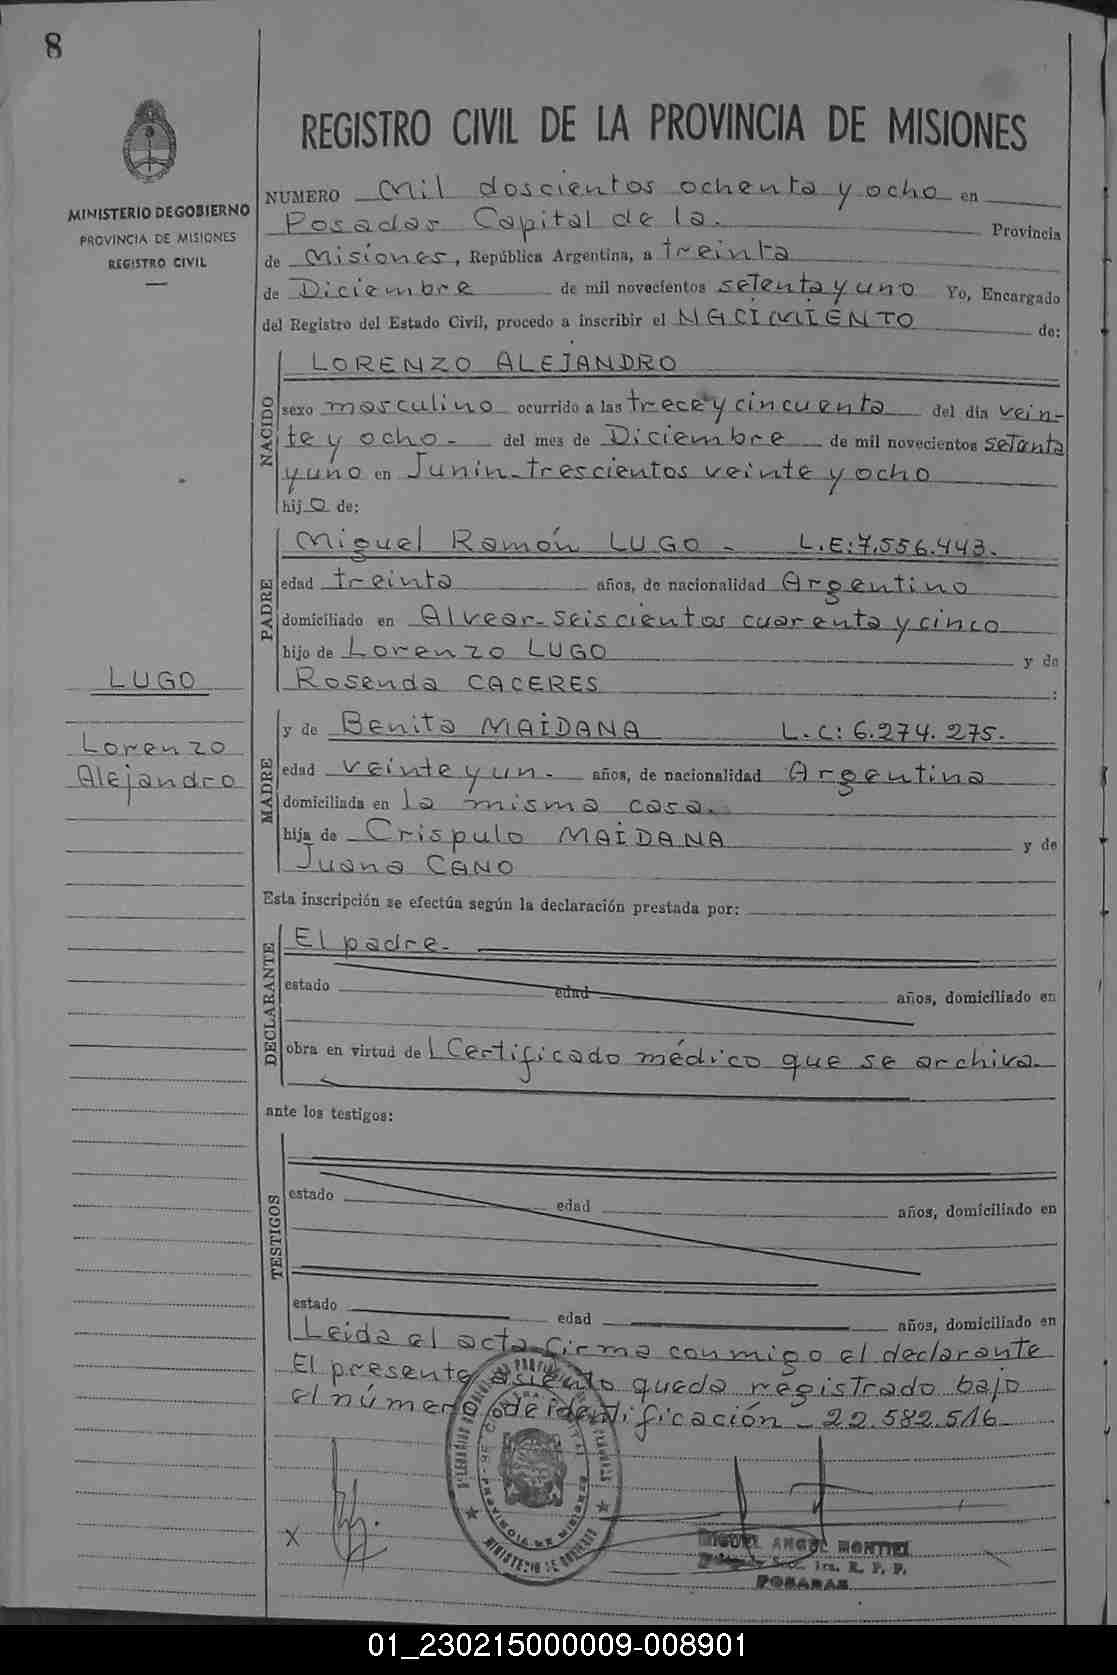 8
MINISTERIO DE GOBIERNO
PROVINCIA DE MISIONES
REGISTRO CIVIL
REGISTRO CIVIL DE LA PROVINCIA DE MISIONES
NUMERO Mil doscientos ochenta y ocho en
Posadas Capital de la. Provincia
de Misiones, República Argentina, a treinta
de Diciembre de mil novecientos setenta y uno Yo, Encargado
del Registro del Estado Civil, procedo a inscribir el NACIMIENTO de:
NACIDO
LORENZO ALEJANDRO
sexo masculino ocurrido a las trece y cincuenta del día vein-
te y ocho - del mes de Diciembre de mil novecientos setenta
y uno en Junin - trescientos veinte y ocho
hijo de:
PADRE
Miguel Ramón LUGO - L.E: 7.556.443.
edad treinta años, de nacionalidad Argentino
domiciliado en Alvear - seiscientos cuarenta y cinco
hijo de Lorenzo LUGO y de
Rosenda CACERES :
LUGO
Lorenzo
Alejandro
MADRE
y de Benita MAIDANA L.C: 6.274.275.
edad veinte y un - años, de nacionalidad Argentina
domiciliada en la misma casa.
hija de Crispulo MAIDANA y de
Juana CANO
Esta inscripción se efectúa según la declaración prestada por:
DECLARANTE
El padre -
estado edad años, domiciliado en
obra en virtud del Certificado médico que se archiva.
ante los testigos:
TESTIGOS
estado edad años, domiciliado en
estado edad años, domiciliado en
Leida el acta firma conmigo el declarante
El presente asiento queda registrado bajo
el número de identificación - 22.582.516
X
MINISTERIO DE GOBIERNO
PROVINCIA DE MISIONES
MIGUEL ANGEL MONTIEL
1ra. R. P. P.
POSADAS
01_230215000009-008901